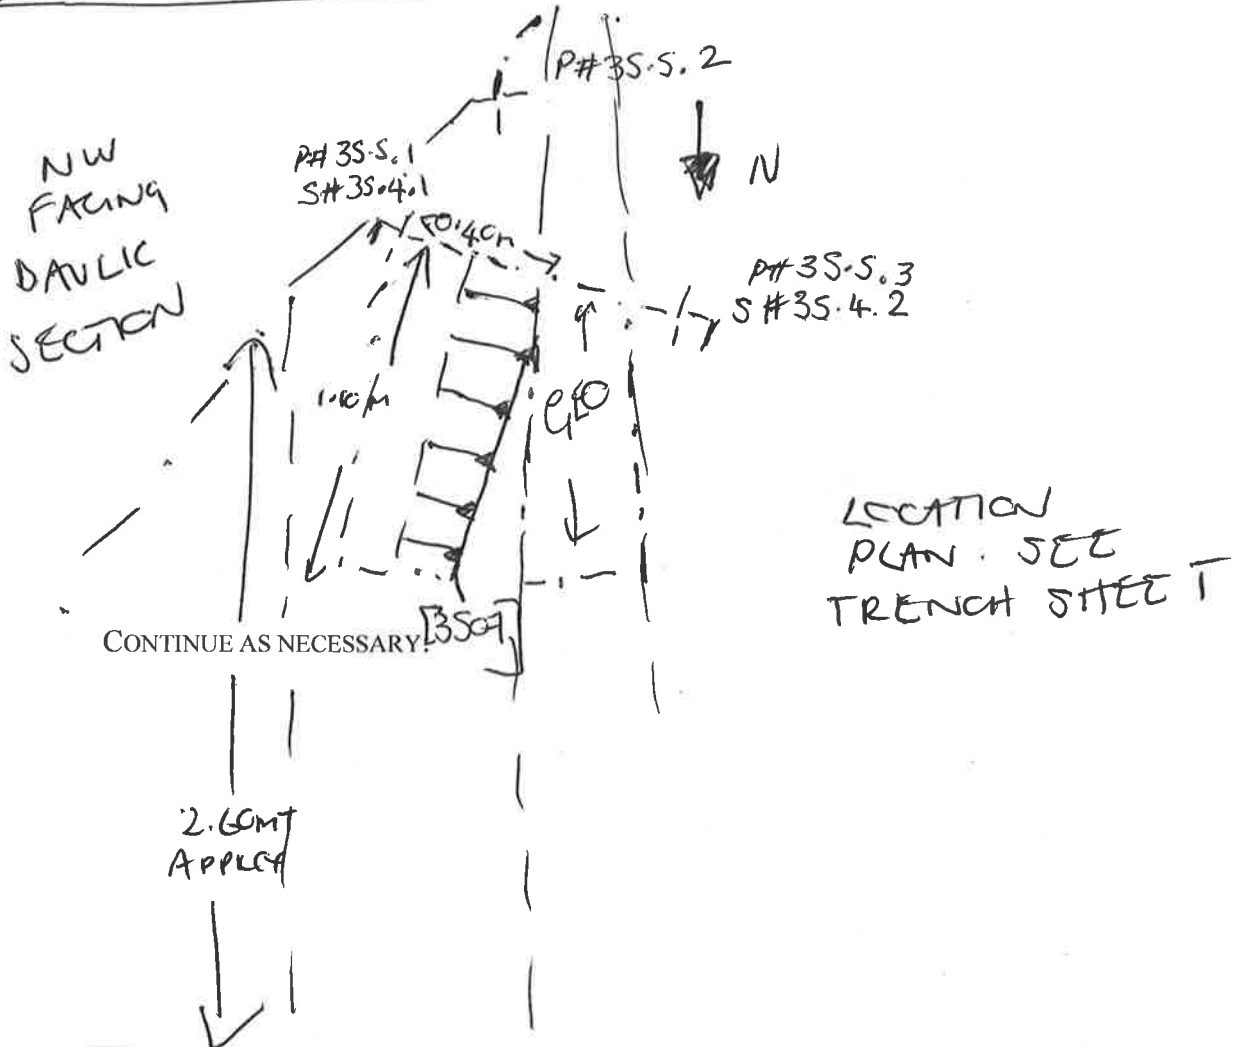 P#35.5.2
NW
FACING
BAULIC
SECTION
P#35.5.1
S#35.4.1
N
0.40m
P#35.5.3
S#35.4.2
GEO
LOCATION
PLAN. SEE
TRENCH SHEET
CONTINUE AS NECESSARY.
[3507]
2.60m+